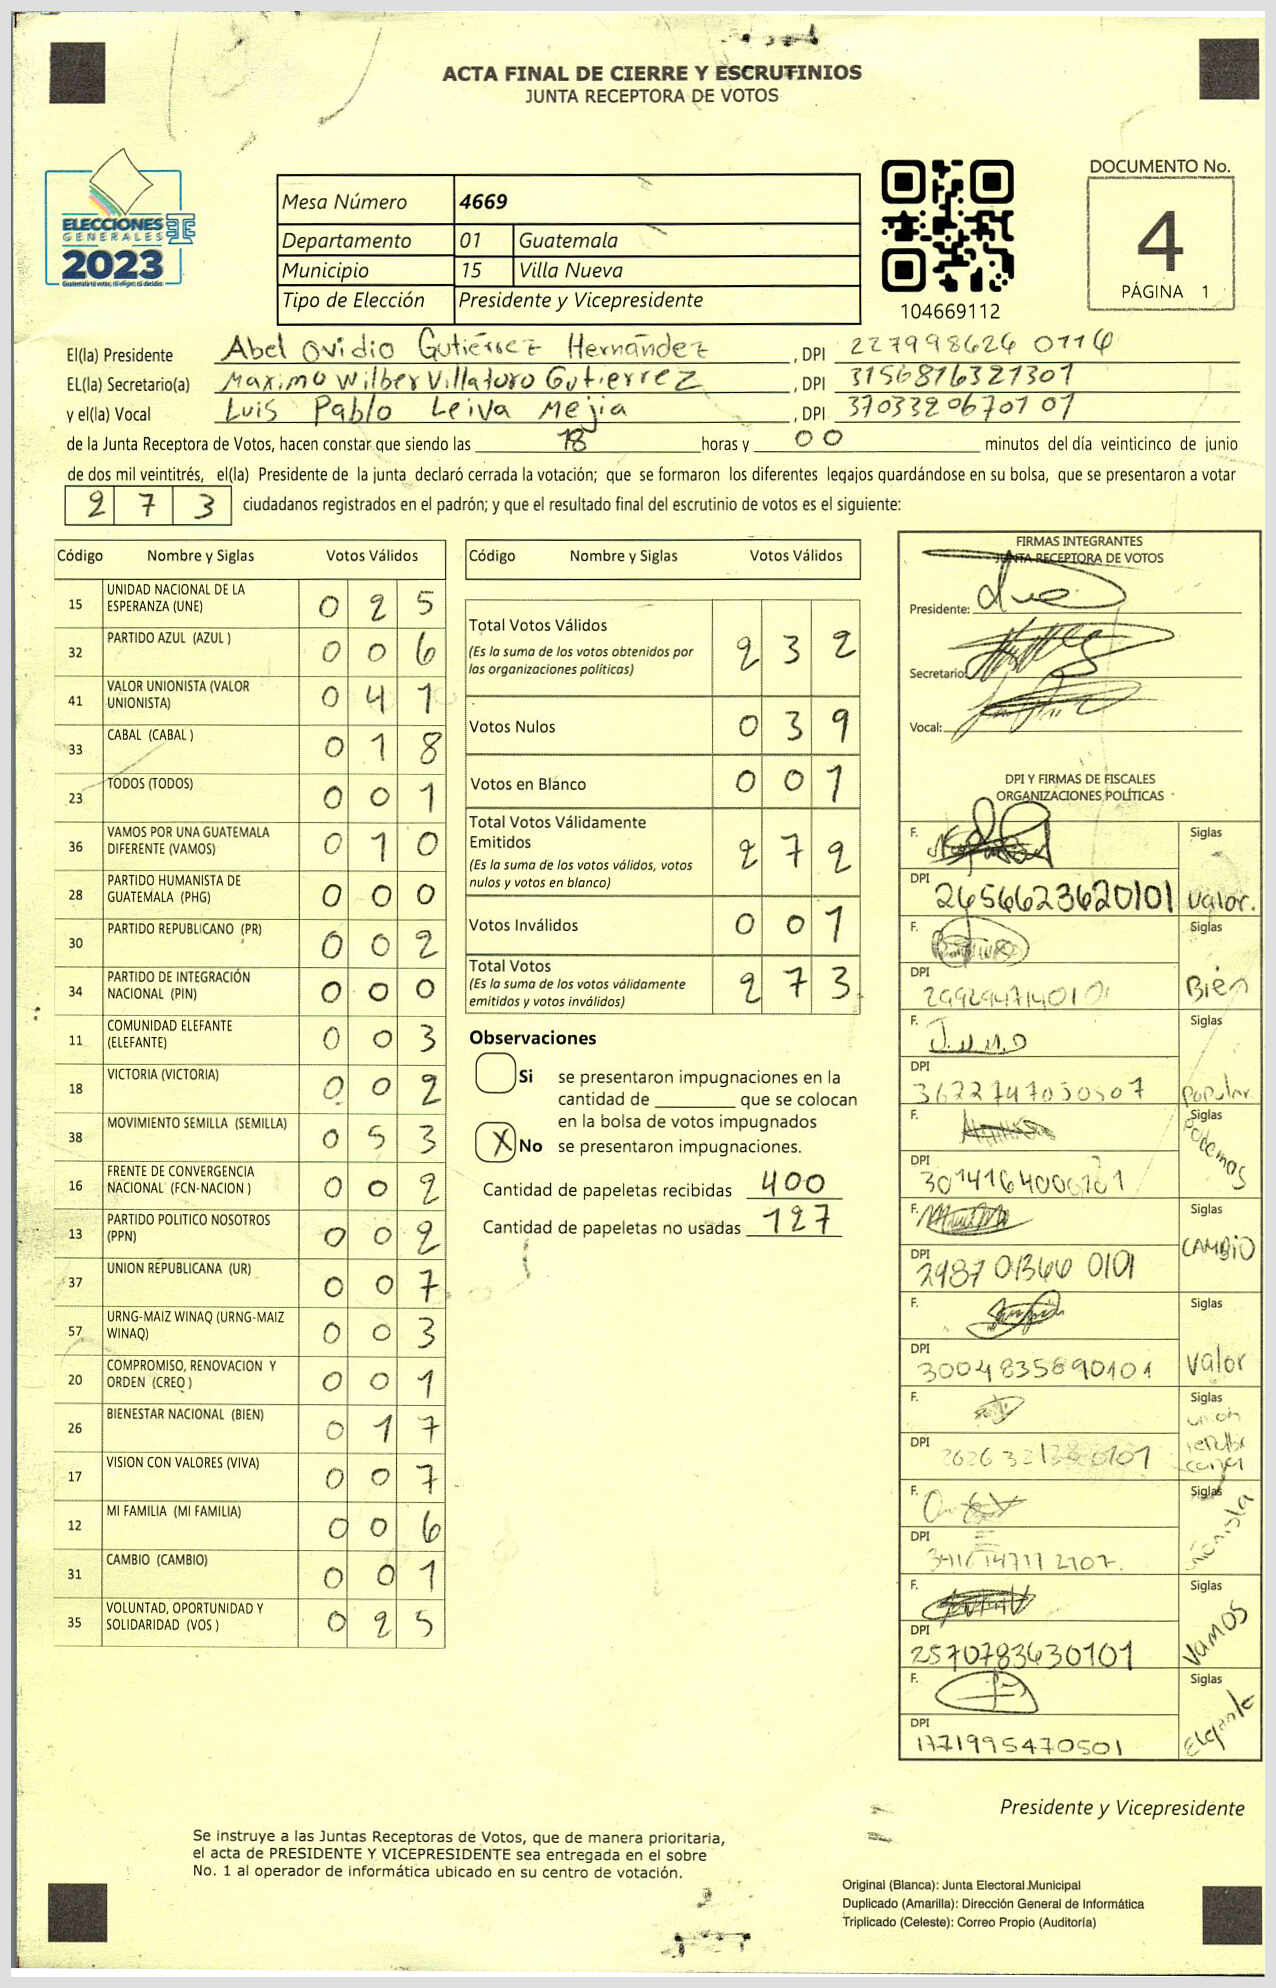 ACTA FINAL DE CIERRE Y ESCRUTINIOS
JUNTA RECEPTORA DE VOTOS
ELECCIONES
GENERALES
2023
Mesa Número 4669
Departamento 01 Guatemala
Municipio 15 Villa Nueva
Tipo de Elección Presidente y Vicepresidente
104669112
DOCUMENTO No.
4
PÁGINA 1
El(la) Presidente Abel Ovidio Gutiérrez Hernández, DPI
EL(la) Secretario(a) Maximo Wilber Villatoro Gutierrez, DPI 3156816321301
y el(la) Vocal Luis Pablo Leiva Mejia, DPI 3703320670101
de la Junta Receptora de Votos, hacen constar que siendo las 18 horas y 00 minutos del día veinticinco de junio
de dos mil veintitrés, el(la) Presidente de la junta declaró cerrada la votación; que se formaron los diferentes legajos quardándose en su bolsa, que se presentaron a votar
273 ciudadanos registrados en el padrón; y que el resultado final del escrutinio de votos es el siguiente:
Código Nombre y Siglas Votos Válidos
15 UNIDAD NACIONAL DE LA ESPERANZA (UNE) 025
32 PARTIDO AZUL (AZUL ) 006
41 VALOR UNIONISTA (VALOR UNIONISTA) 041
33 CABAL (CABAL ) 018
23 TODOS (TODOS) 001
36 VAMOS POR UNA GUATEMALA DIFERENTE (VAMOS) 010
28 PARTIDO HUMANISTA DE GUATEMALA (PHG) 000
30 PARTIDO REPUBLICANO (PR) 002
34 PARTIDO DE INTEGRACIÓN NACIONAL (PIN) 000
11 COMUNIDAD ELEFANTE (ELEFANTE) 003
18 VICTORIA (VICTORIA) 002
38 MOVIMIENTO SEMILLA (SEMILLA) 053
16 FRENTE DE CONVERGENCIA NACIONAL (FCN-NACION ) 002
13 PARTIDO POLITICO NOSOTROS (PPN) 002
37 UNION REPUBLICANA (UR) 007
57 URNG-MAIZ WINAQ (URNG-MAIZ WINAQ) 003
20 COMPROMISO, RENOVACION Y ORDEN (CREO ) 001
26 BIENESTAR NACIONAL (BIEN) 017
17 VISION CON VALORES (VIVA) 007
12 MI FAMILIA (MI FAMILIA) 006
31 CAMBIO (CAMBIO) 001
35 VOLUNTAD, OPORTUNIDAD Y SOLIDARIDAD (VOS ) 025
Código Nombre y Siglas Votos Válidos
Total Votos Válidos 232
(Es la suma de los votos obtenidos por las organizaciones políticas)
Votos Nulos 039
Votos en Blanco 001
Total Votos Válidamente Emitidos 272
(Es la suma de los votos válidos, votos nulos y votos en blanco)
Votos Inválidos 001
Total Votos 273
(Es la suma de los votos válidamente emitidos y votos inválidos)
Observaciones
Si se presentaron impugnaciones en la
cantidad de ________ que se colocan
en la bolsa de votos impugnados
X No se presentaron impugnaciones.
Cantidad de papeletas recibidas 400
Cantidad de papeletas no usadas 127
FIRMAS INTEGRANTES
JUNTA RECEPTORA DE VOTOS
Presidente:
Secretario:
Vocal:
DPI Y FIRMAS DE FISCALES
ORGANIZACIONES POLÍTICAS
F. Siglas
DPI 2656623620101 Valor.
F. Siglas
DPI Bien
F. Siglas
DPI 3622747050507 popular
F. Siglas
DPI Podemos
F. Siglas
DPI 2987013660101 CAMBIO
F. Siglas
DPI 3004835890101 Valor
F. Siglas
DPI union
F. Siglas
DPI
F. Siglas
DPI 2570783630101 VAMOS
F. Siglas
DPI 1771995470501
Presidente y Vicepresidente
Se instruye a las Juntas Receptoras de Votos, que de manera prioritaria,
el acta de PRESIDENTE Y VICEPRESIDENTE sea entregada en el sobre
No. 1 al operador de informática ubicado en su centro de votación.
Original (Blanca): Junta Electoral Municipal
Duplicado (Amarilla): Dirección General de Informática
Triplicado (Celeste): Correo Propio (Auditoría)